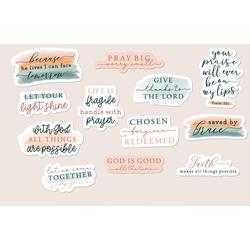 because
he lives I can face
tomorrow
PRAY BIG
worry small
GIVE
thanks to
THE LORD
your praise
will ever
be on
my lips
LET YOUR
light shine
LIFE IS
fragile
handle with
prayer
CHOSEN
forgiven
REDEEMED
saved by
Grace
with God
ALL THINGS
are possible
let us come
TOGETHER
GOD IS GOOD
all the time
Faith
makes all things possible